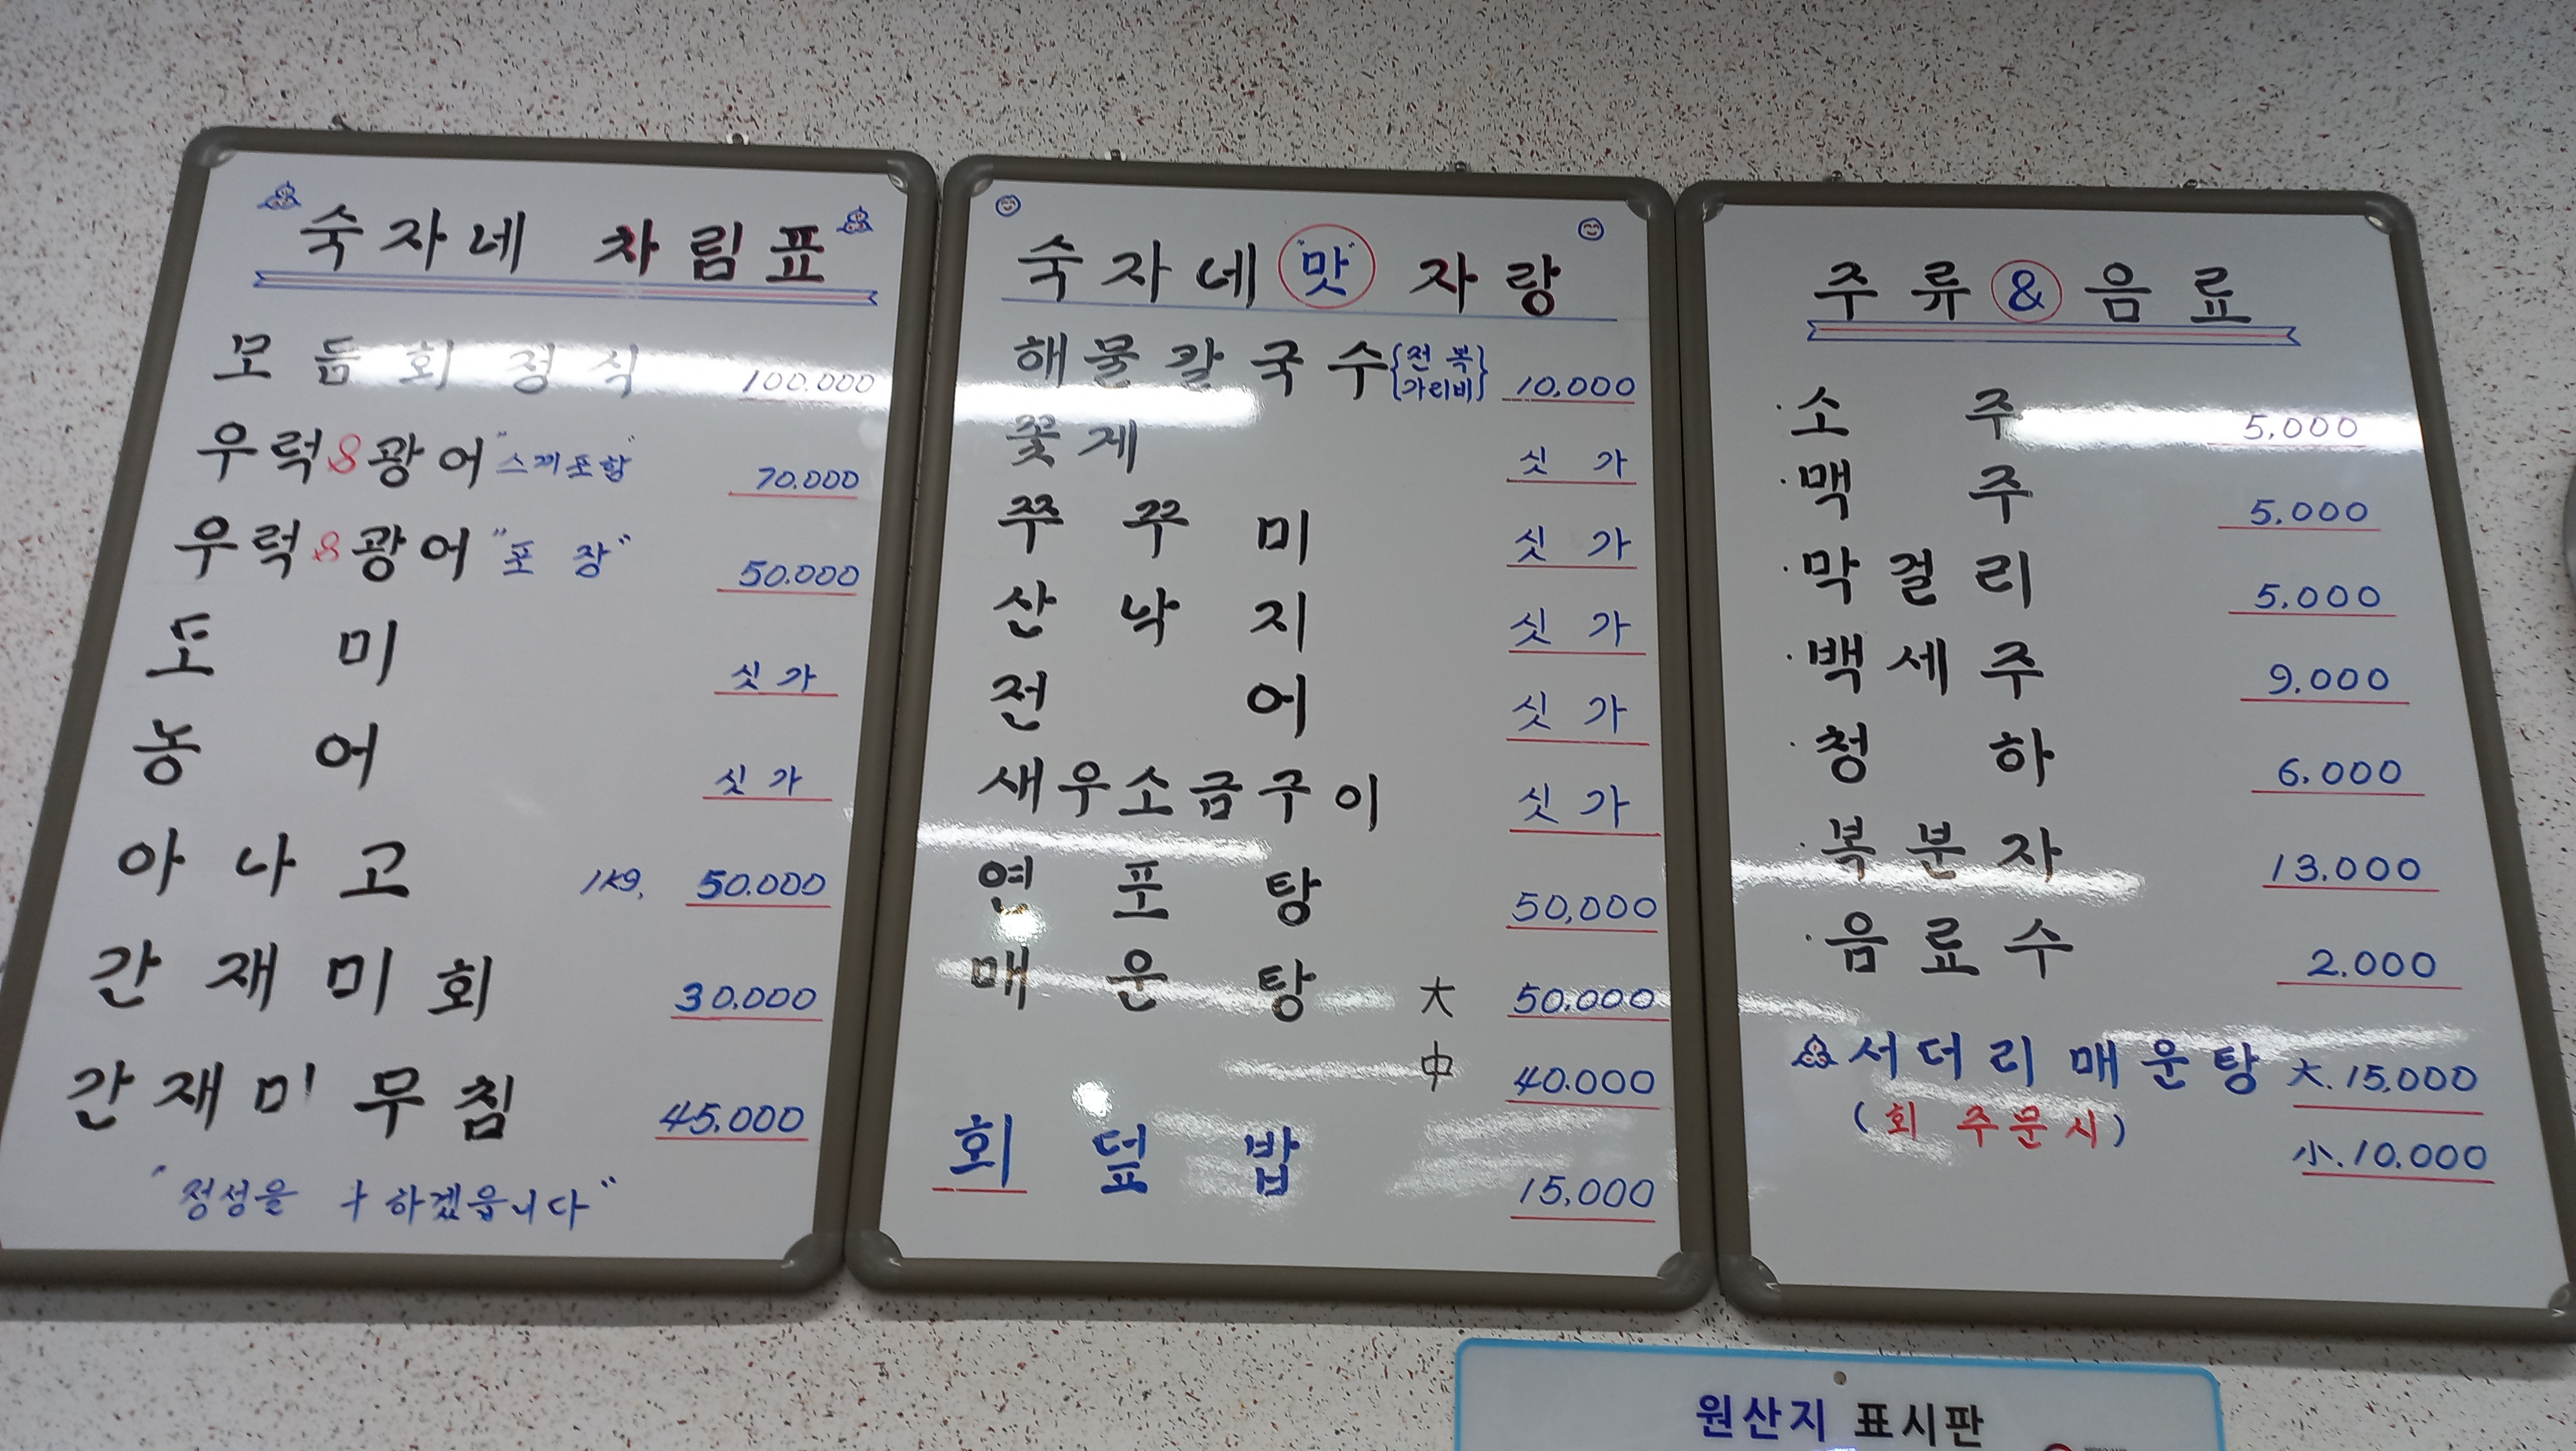 숙자네 차림표
모듬회정식 100.000
우럭&광어 "스끼포함" 70.000
우럭&광어 "포장" 50.000
도미 싯가
농어 싯가
아나고 1kg, 50.000
간재미회 30.000
간재미무침 45.000
"정성을 +하겠읍니다"
숙자네 "맛" 자랑
해물칼국수 {전복 가리비} 10,000
꽃게 싯가
쭈꾸미 싯가
산낙지 싯가
전어 싯가
새우소금구이 싯가
연포탕 50,000
매운탕 大 50.000
中 40.000
회덮밥 15,000
주류 & 음료
·소주 5,000
·맥주 5.000
·막걸리 5.000
·백세주 9.000
·청하 6.000
·복분자 13.000
·음료수 2.000
서더리매운탕 大. 15,000
(회 주문시) 小. 10.000
원산지 표시판